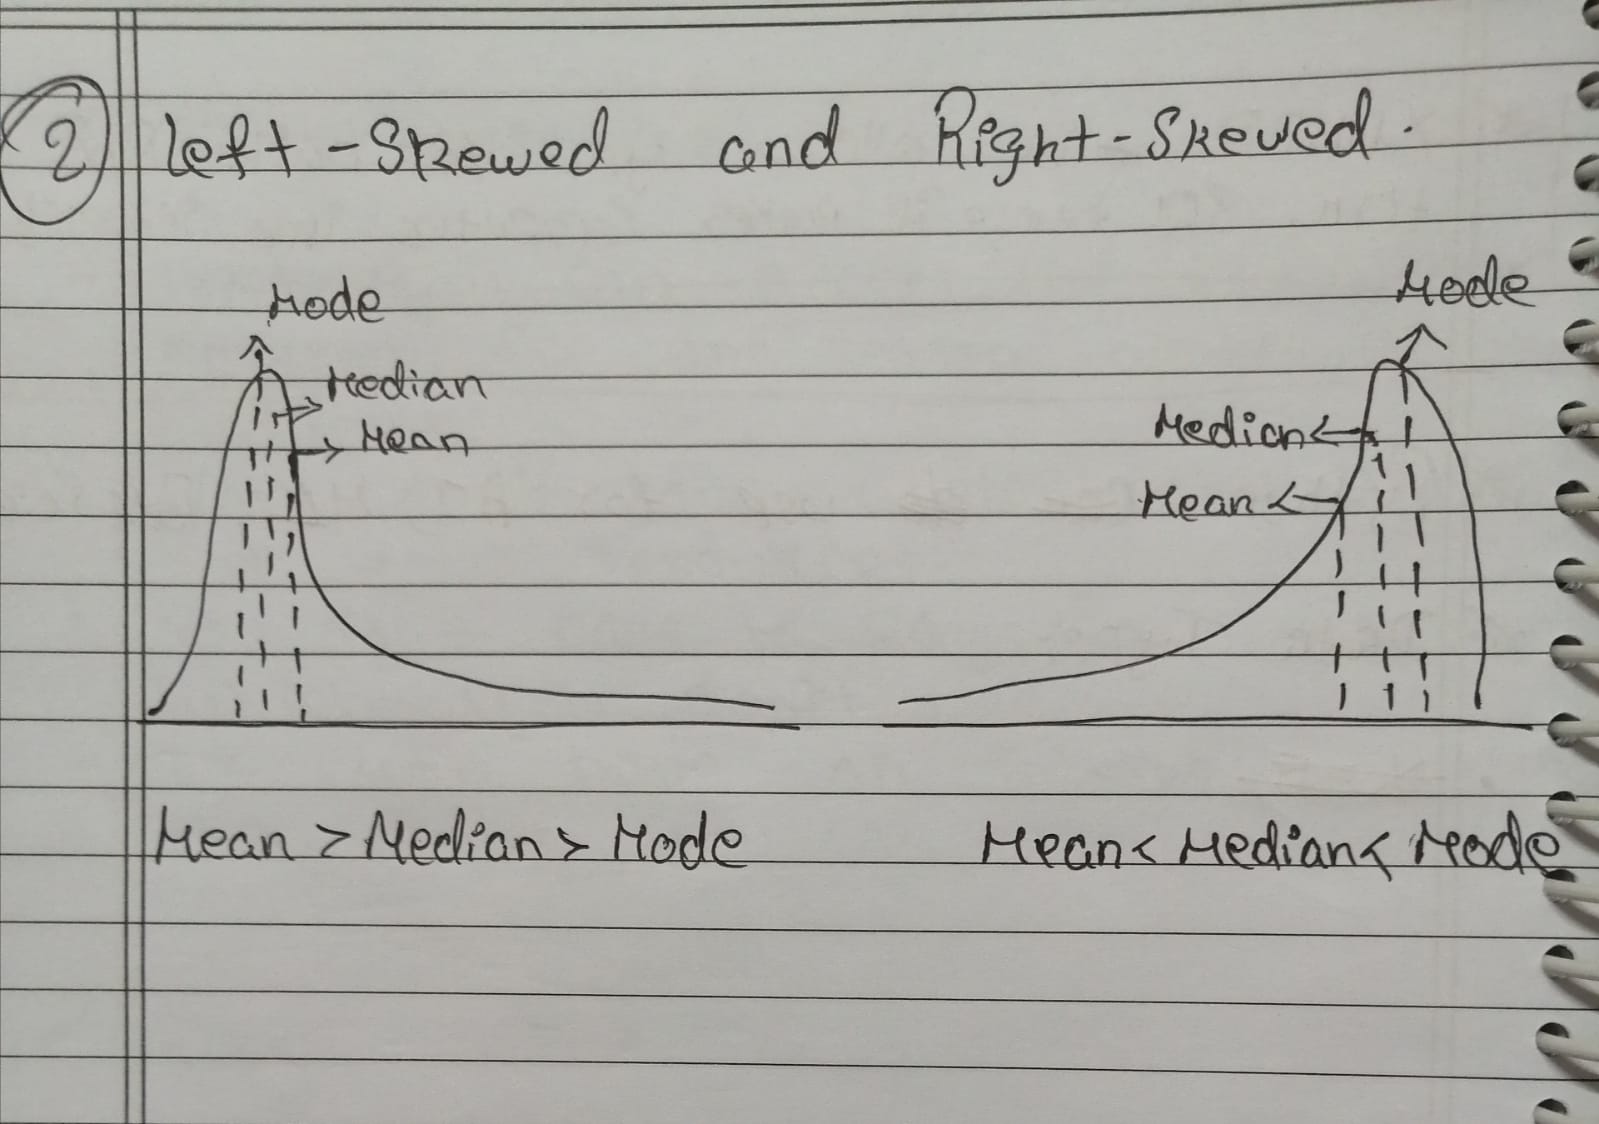 2 Left-Skewed and Right-Skewed.
Mode Mode
Median
Mean
Median
Mean
Mean > Median > Mode Mean < Median < Mode